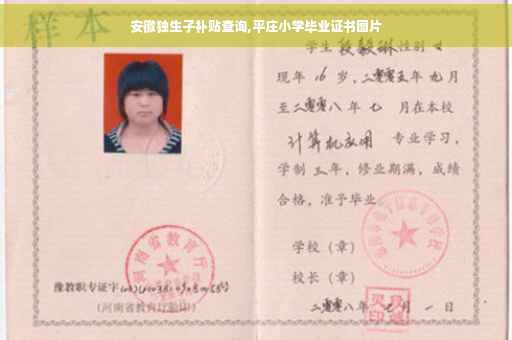 安徽独生子补贴查询,平庄小学毕业证书图片
样本
学生段毅琳性别女
现年16岁,二零零五年九月
至二零零八年七月在本校
计算机应用 专业学习,
学制三年,修业期满,成绩
合格,准予毕业
学校(章)
校长(章)
二零零八年七月一日
河南省教育厅
豫教职专证字
(河南省教育厅验印)